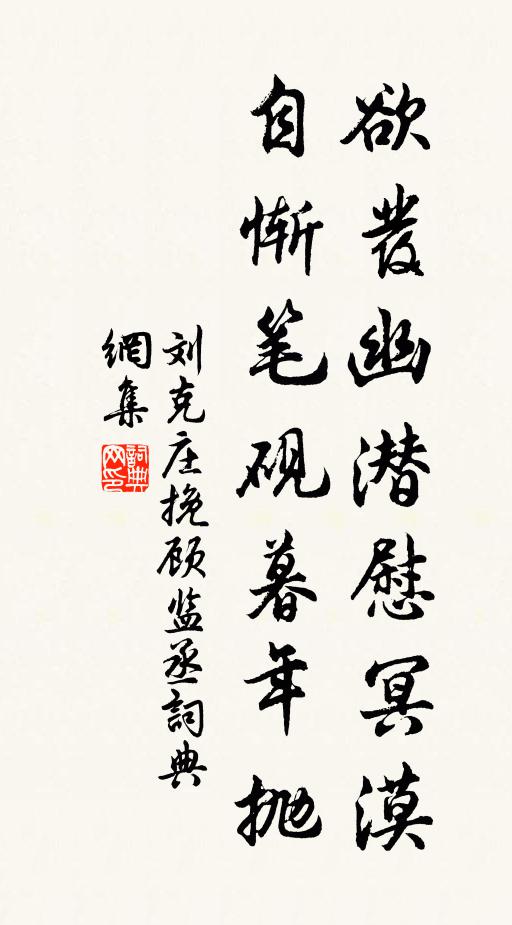 欲發幽潜慰冥漠
自惭笔砚暮年抛
刘克庄挽顾监丞詞典
網集
詞典
网印